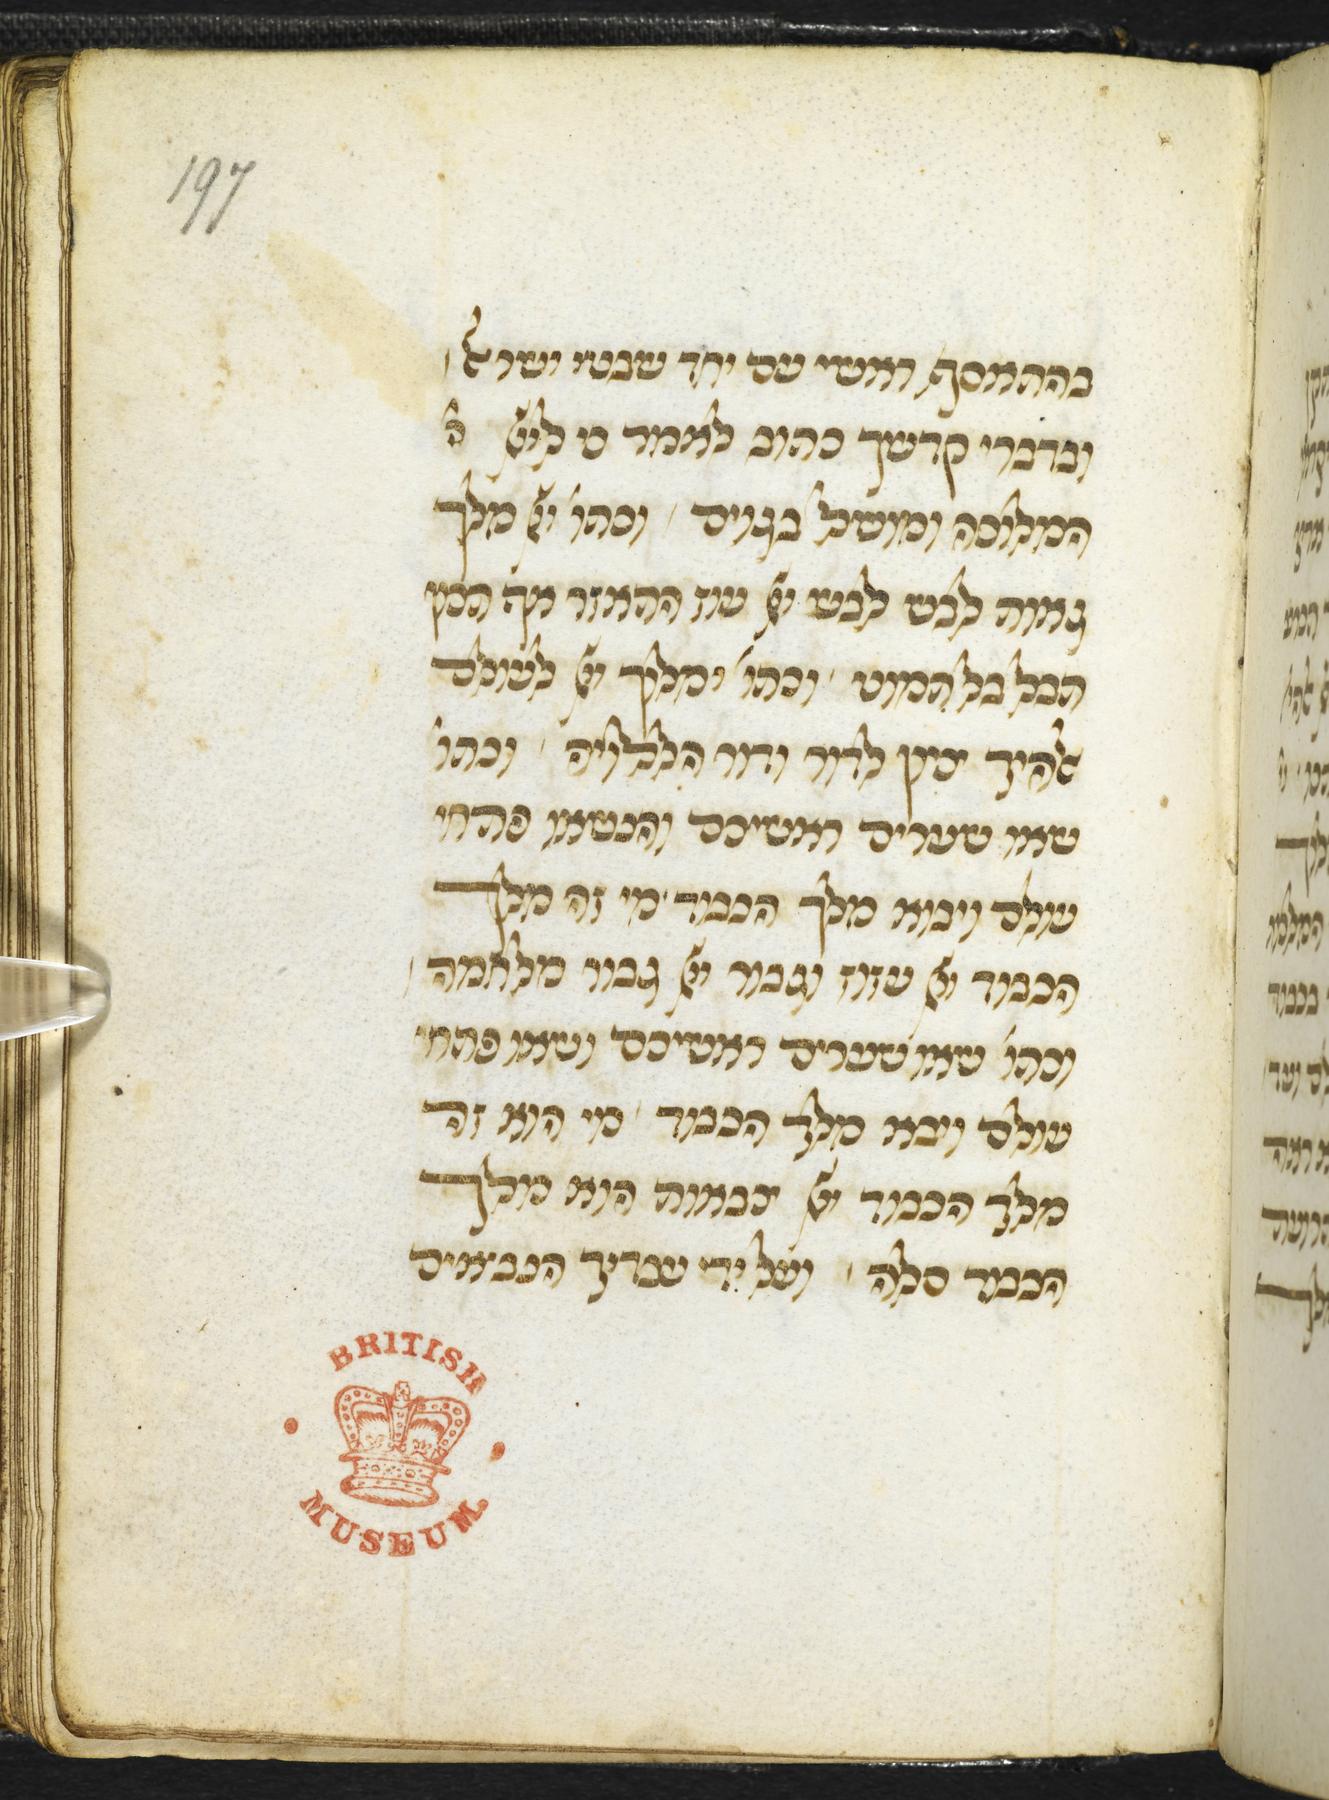 197
בהתאסף ראשי עם יחד שבטי ישראל
ובדברי קדשך כתוב לאמר כי לייי
המלוכה ומושל בגוים וכתו' ייי מלך
גאות לבש לבש ייי עוז התאזר אף תכון
תבל בל תמוט וכתו' ימלך ייי לעולם
אלהיך ציון לדור ודור הללויה וכתו'
שאו שערים ראשיכם והנשאו פתחי
עולם ויבוא מלך הכבוד מי זה מלך
הכבוד ייי עזוז וגבור ייי גבור מלחמה
וכתו' שאו שערים ראשיכם ושאו פתחי
עולם ויבא מלך הכבוד מי הוא זה
מלך הכבוד ייי צבאות הוא מלך
הכבוד סלה ועל ידי עבדיך הנביאים
BRITISH
MUSEUM